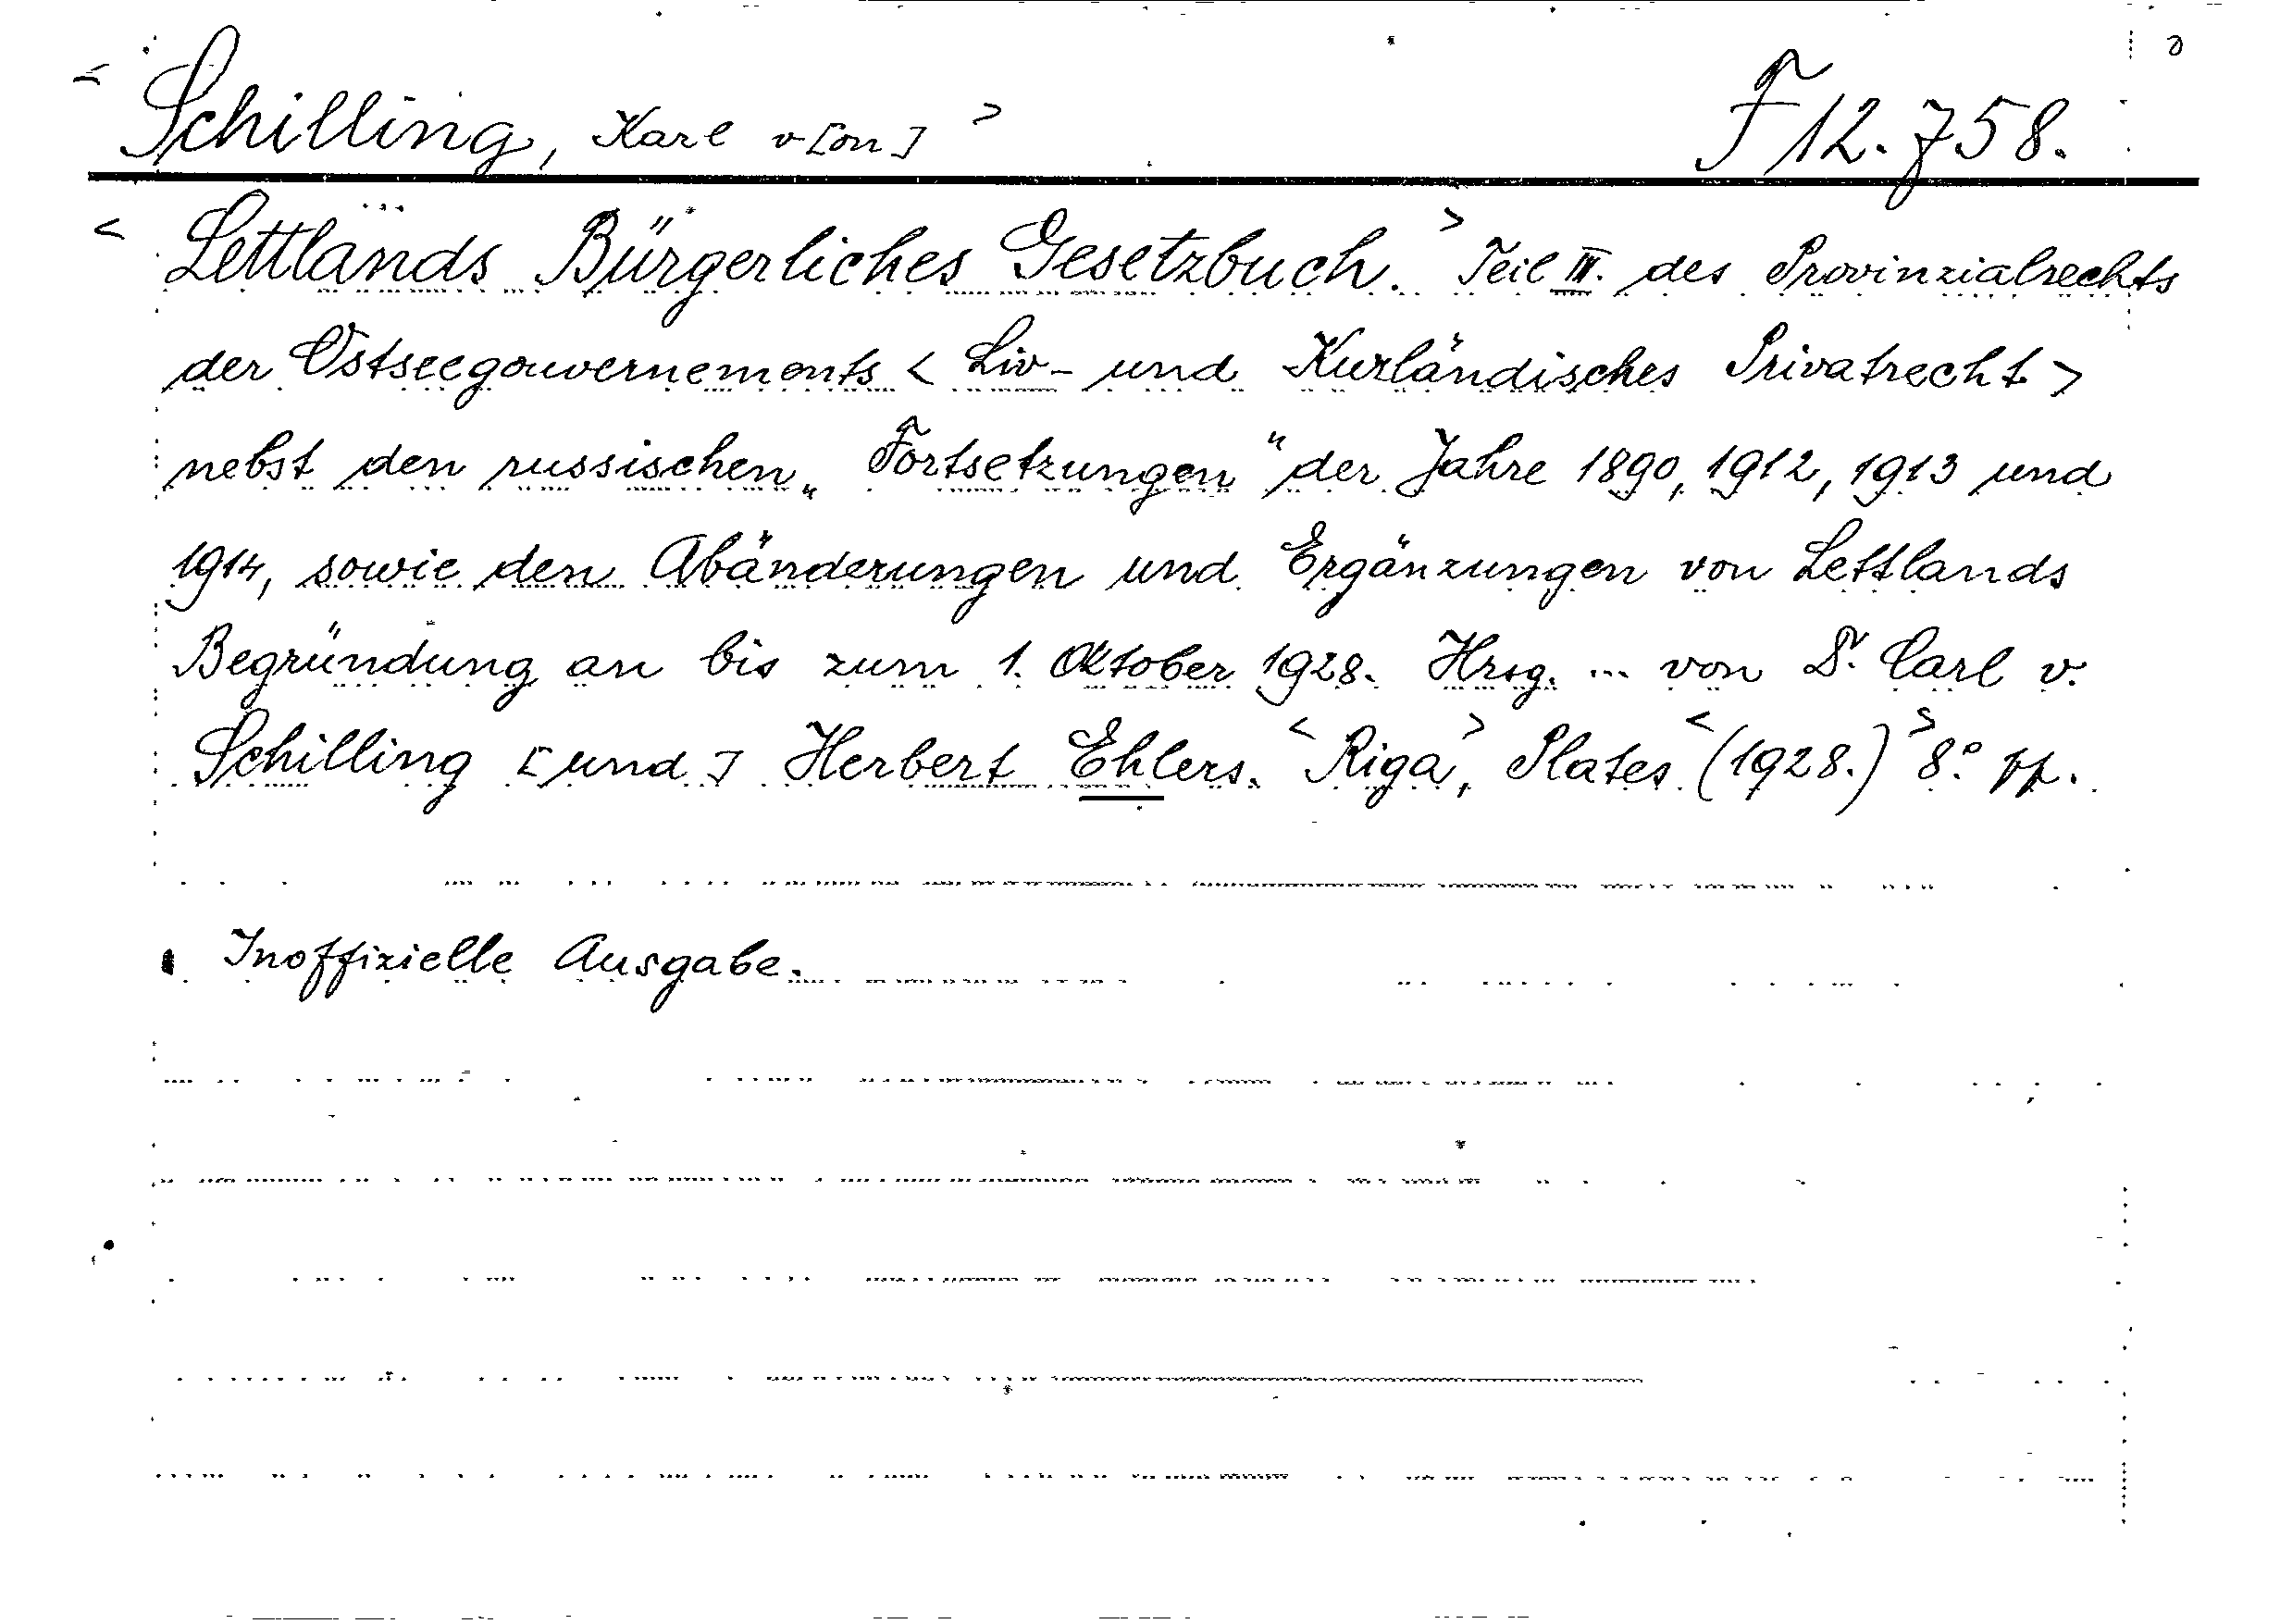 < Schilling, Karl v[on] > F 12.758.
< Lettlands Bürgerliches Gesetzbuch. > Teil III. des Provinzialrechts
der Ostseegouvernements < Liv- und Kurländisches Privatrecht >
nebst den russischen „Fortsetzungen“ der Jahre 1890, 1912, 1913 und
1914, sowie den Abänderungen und Ergänzungen von Lettlands
Begründung an bis zum 1. Oktober 1928. Hrsg. ... von Dr. Carl v.
Schilling [und] Herbert Ehlers. < Riga >, Plates < (1928.) > 8.°
Inoffizielle Ausgabe.